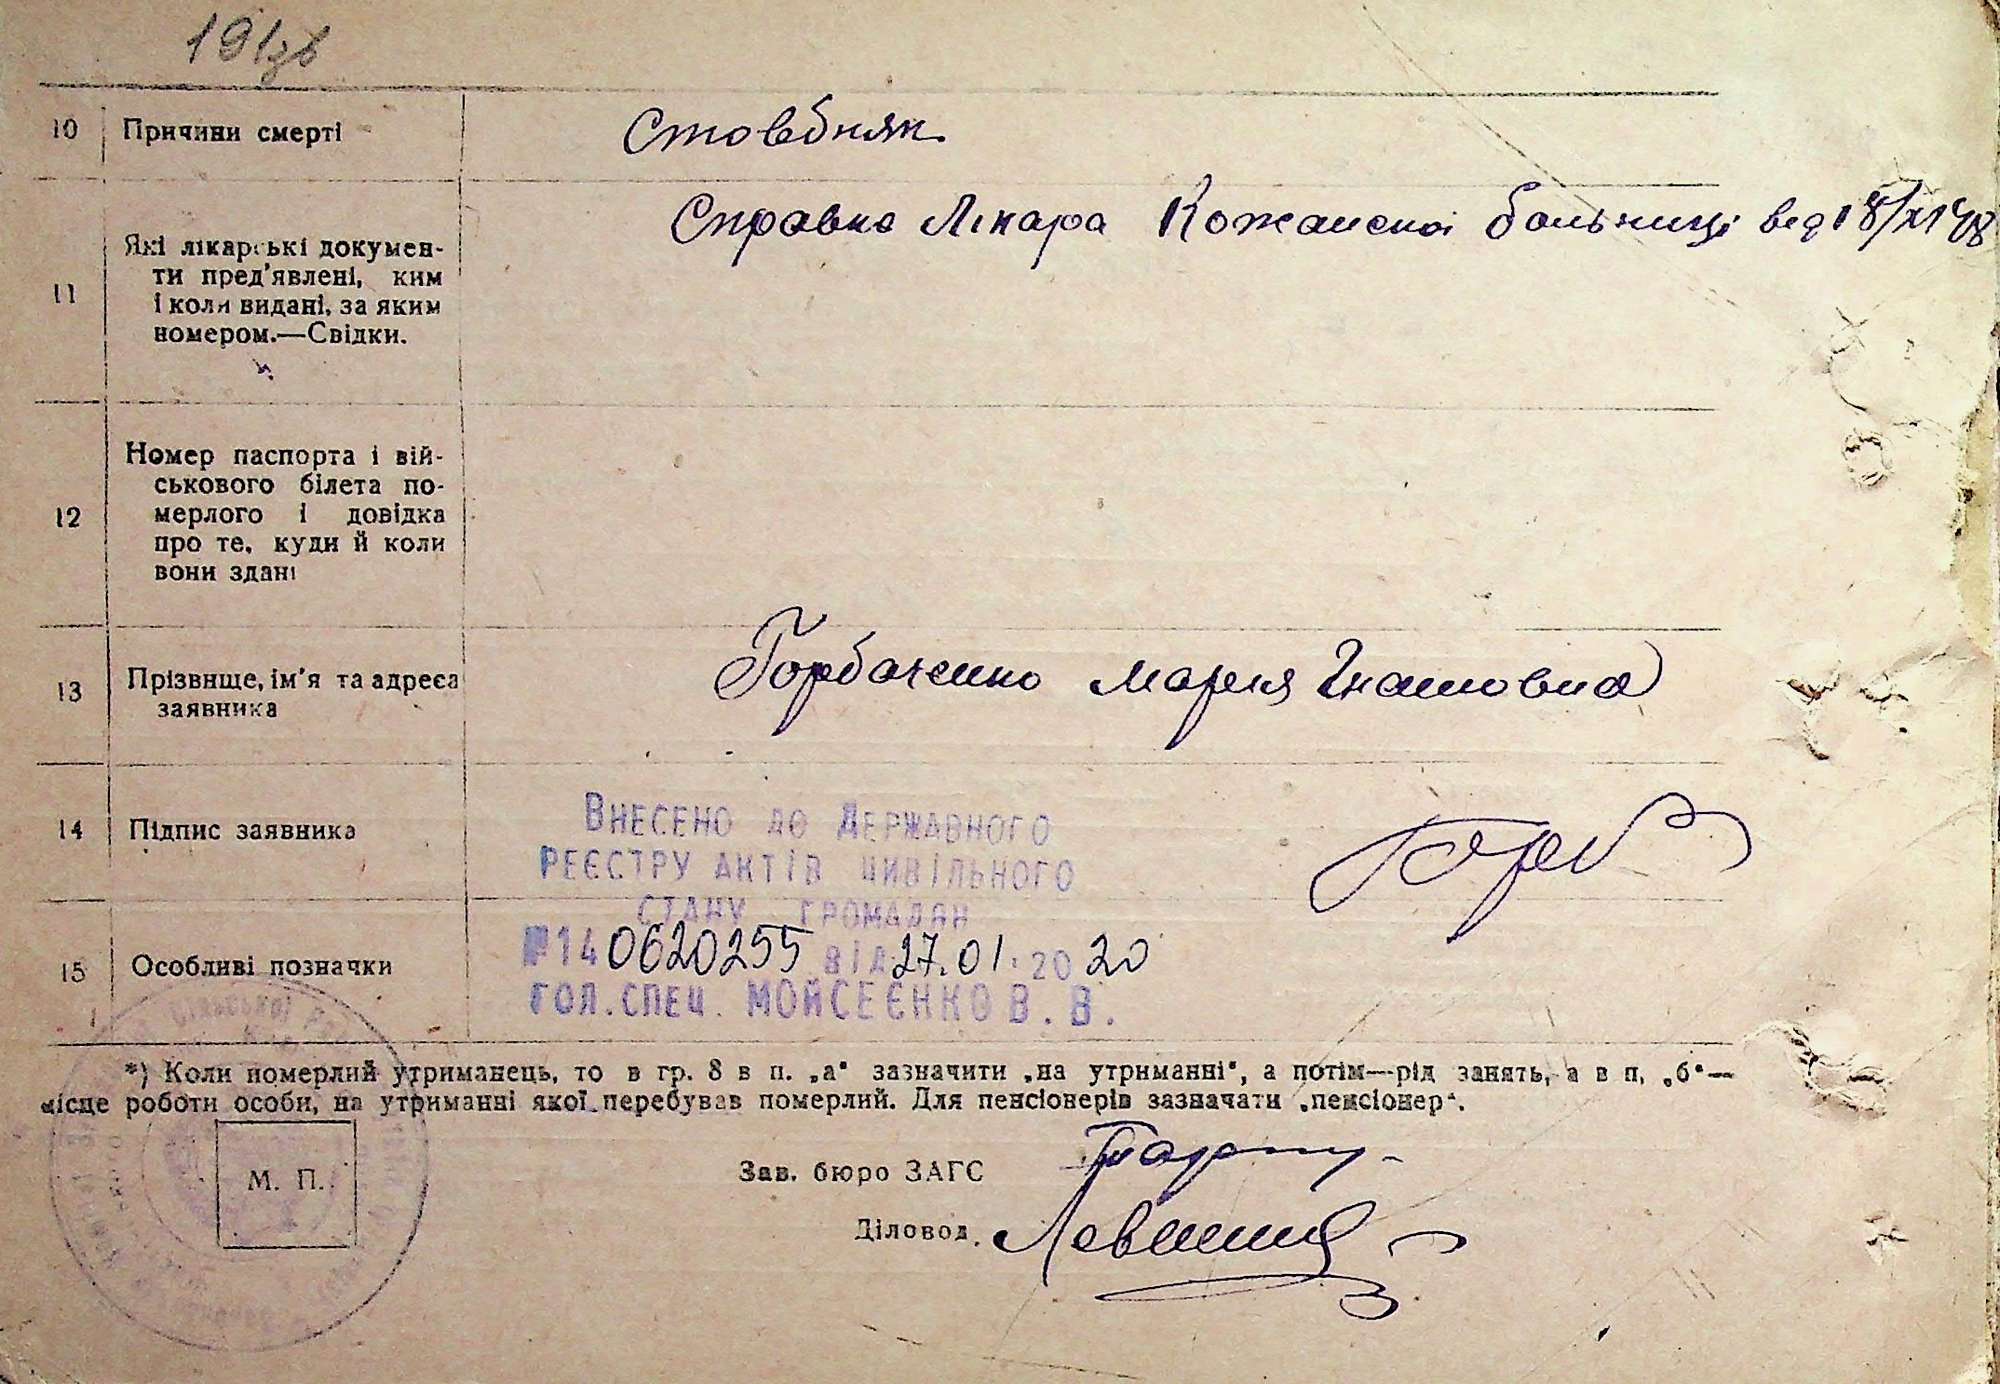 191зв
10 Причини смерті Стовбняк
Справка Лікара Кожанской больниці від 18/XI 48
11 Які лікарські докумен-
ти пред'явлені, ким
і коли видані, за яким
номером.—Свідки.
12 Номер паспорта і вій-
ськового білета по-
мерлого і довідка
про те, куди й коли
вони здані
13 Прізвище, ім'я та адреса
заявника
Горбаченко Мария Гнатовна
14 Підпис заявника
Горб
Внесено до Державного
реєстру актів цивільного
стану громадян
№140620255 від 27.01.2020
гол.спец. Мойсеєнко В.В.
15 Особливі позначки
*) Коли померлий утриманець, то в гр. 8 в п. „а“ зазначити „на утриманні“, а потім—рід занять, а в п, „б“—
місце роботи особи, на утриманні якої перебував померлий. Для пенсіонерів зазначати „пенсіонер“.
М. П.
Зав. бюро ЗАГС
Діловод.